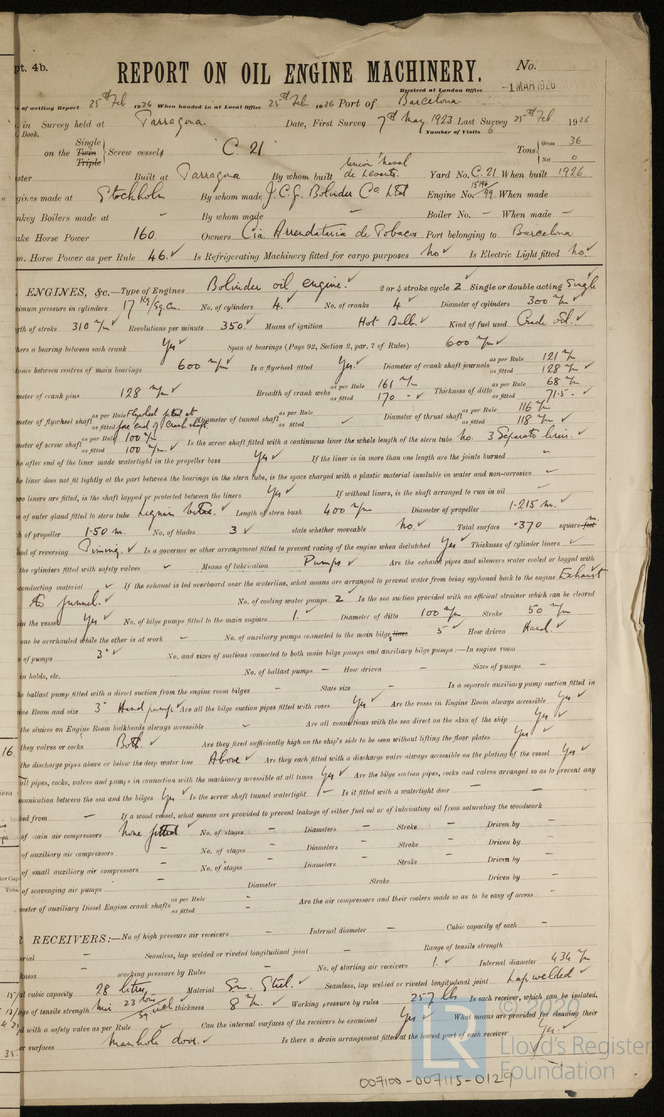 pt. 4b.
REPORT ON OIL ENGINE MACHINERY.
No.
Received at London Office
-1 MAR 1926
of writing Report 25th Feb 1926 When handed in at Local Office 25th Feb 1926 Port of Barcelona.
in Survey held at Tarragona. Date, First Survey 7th May, 1923 Last Survey 25th Feb 1926
Book. Number of Visits 6
on the Single Twin Triple Screw vessel C. 21 Tons Gross 36 Net 0
Built at Tarragona By whom built Union Naval de Levante. Yard No. C. 21 When built 1926
gines made at Stockholm By whom made J. C. G. Bolinder Co Ltd Engine No. 15196/99 When made
nkey Boilers made at - By whom made - Boiler No. - When made -
ake Horse Power 160. Owners Cia Arrendataria de Tabacos Port belonging to Barcelona
m. Horse Power as per Rule 46. Is Refrigerating Machinery fitted for cargo purposes No Is Electric Light fitted No.
ENGINES, &c.—Type of Engines Bolinder oil engine. 2 or 4 stroke cycle 2 Single or double acting Single
ximum pressure in cylinders 17 Kg/Sq.Cm. No. of cylinders 4. No. of cranks 4 Diameter of cylinders 300 m/m
gth of stroke 310 m/m Revolutions per minute 350 Means of ignition Hot Bulb. Kind of fuel used Crude oil.
here a bearing between each crank Yes Span of bearings (Page 92, Section 2, par. 7 of Rules) 600 m/m
ance between centres of main bearings 600 m/m Is a flywheel fitted Yes. Diameter of crank shaft journals as per Rule 121 m/m as fitted 128 m/m
meter of crank pins 128 m/m Breadth of crank webs as per Rule 161 m/m as fitted 170 - Thickness of ditto as per Rule 68 m/m as fitted 71.5 -
meter of flywheel shaft as per Rule Flywheel fitted at as fitted fore end of Crankshaft Diameter of tunnel shaft as per Rule as fitted Diameter of thrust shaft as per Rule 116 m/m as fitted 118 m/m
meter of screw shaft as per Rule 100 m/m as fitted 100 m/m. Is the screw shaft fitted with a continuous liner the whole length of the stern tube No. 3 Separate liners.
he after end of the liner made watertight in the propeller boss Yes If the liner is in more than one length are the joints burned -
he liner does not fit tightly at the part between the bearings in the stern tube, is the space charged with a plastic material insoluble in water and non-corrosive -
wo liners are fitted, is the shaft lapped or protected between the liners Yes If without liners, is the shaft arranged to run in oil
of outer gland fitted to stern tube Lignum vitae. Length of stern bush 400 m/m Diameter of propeller 1.215 m.
h of propeller 1.50 m. No. of blades 3 state whether moveable No. Total surface .370 square feet
hod of reversing Timing. Is a governor or other arrangement fitted to prevent racing of the engine when declutched Yes Thickness of cylinder liners
the cylinders fitted with safety valves Means of lubrication Pumps Are the exhaust pipes and silencers water cooled or lagged with
conducting material - If the exhaust is led overboard near the waterline, what means are arranged to prevent water from being syphoned back to the engine Exhaust
to funnel. No. of cooling water pumps 2 Is the sea suction provided with an efficient strainer which can be cleared
in the vessel Yes No. of bilge pumps fitted to the main engines 1. Diameter of ditto 100 m/m Stroke 50 m/m
one be overhauled while the other is at work - No. of auxiliary pumps connected to the main bilge lines 5 How driven Hand.
of pumps 3" No. and sizes of suctions connected to both main bilge pumps and auxiliary bilge pumps:—In engine room
in holds, etc. No. of ballast pumps - How driven - Sizes of pumps -
he ballast pump fitted with a direct suction from the engine room bilges - State size - Is a separate auxiliary pump suction fitted in
ine Room and size 3" Hand pump Are all the bilge suction pipes fitted with roses Yes Are the roses in Engine Room always accessible Yes
the sluices on Engine Room bulkheads always accessible - Are all connections with the sea direct on the skin of the ship Yes
they valves or cocks Both Are they fixed sufficiently high on the ship's side to be seen without lifting the floor plates Yes
the discharge pipes above or below the deep water line Above Are they each fitted with a discharge valve always accessible on the plating of the vessel Yes
all pipes, cocks, valves and pumps in connection with the machinery accessible at all times Yes Are the bilge suction pipes, cocks and valves arranged so as to prevent any
munication between the sea and the bilges Yes Is the screw shaft tunnel watertight - Is it fitted with a watertight door -
ked from - If a wood vessel, what means are provided to prevent leakage of either fuel oil or of lubricating oil from saturating the woodwork
of main air compressors None fitted No. of stages - Diameters - Stroke - Driven by -
of auxiliary air compressors - No. of stages - Diameters - Stroke - Driven by -
of small auxiliary air compressors - No. of stages - Diameters - Stroke - Driven by -
of scavenging air pumps - Diameter Stroke Driven by -
meter of auxiliary Diesel Engine crank shafts as per Rule as fitted - Are the air compressors and their coolers made so as to be easy of access -
RECEIVERS:—No. of high pressure air receivers - Internal diameter - Cubic capacity of each -
rial - Seamless, lap welded or riveted longitudinal joint - Range of tensile strength
kness - working pressure by Rules - No. of starting air receivers 1. Internal diameter 434 m/m
al cubic capacity 28 litres Material Sm. Steel. Seamless, lap welded or riveted longitudinal joint Lap welded
ge of tensile strength Min 23 tons sq. inch thickness 8 m/m. Working pressure by rules 257 lbs Is each receiver, which can be isolated,
d with a safety valve as per Rule Can the internal surfaces of the receivers be examined Yes What means are provided for cleaning their
er surfaces Manhole door. Is there a drain arrangement fitted at the lowest part of each receiver Yes.
© 2020
LR
Lloyd's Register
Foundation
007100-007115-0129